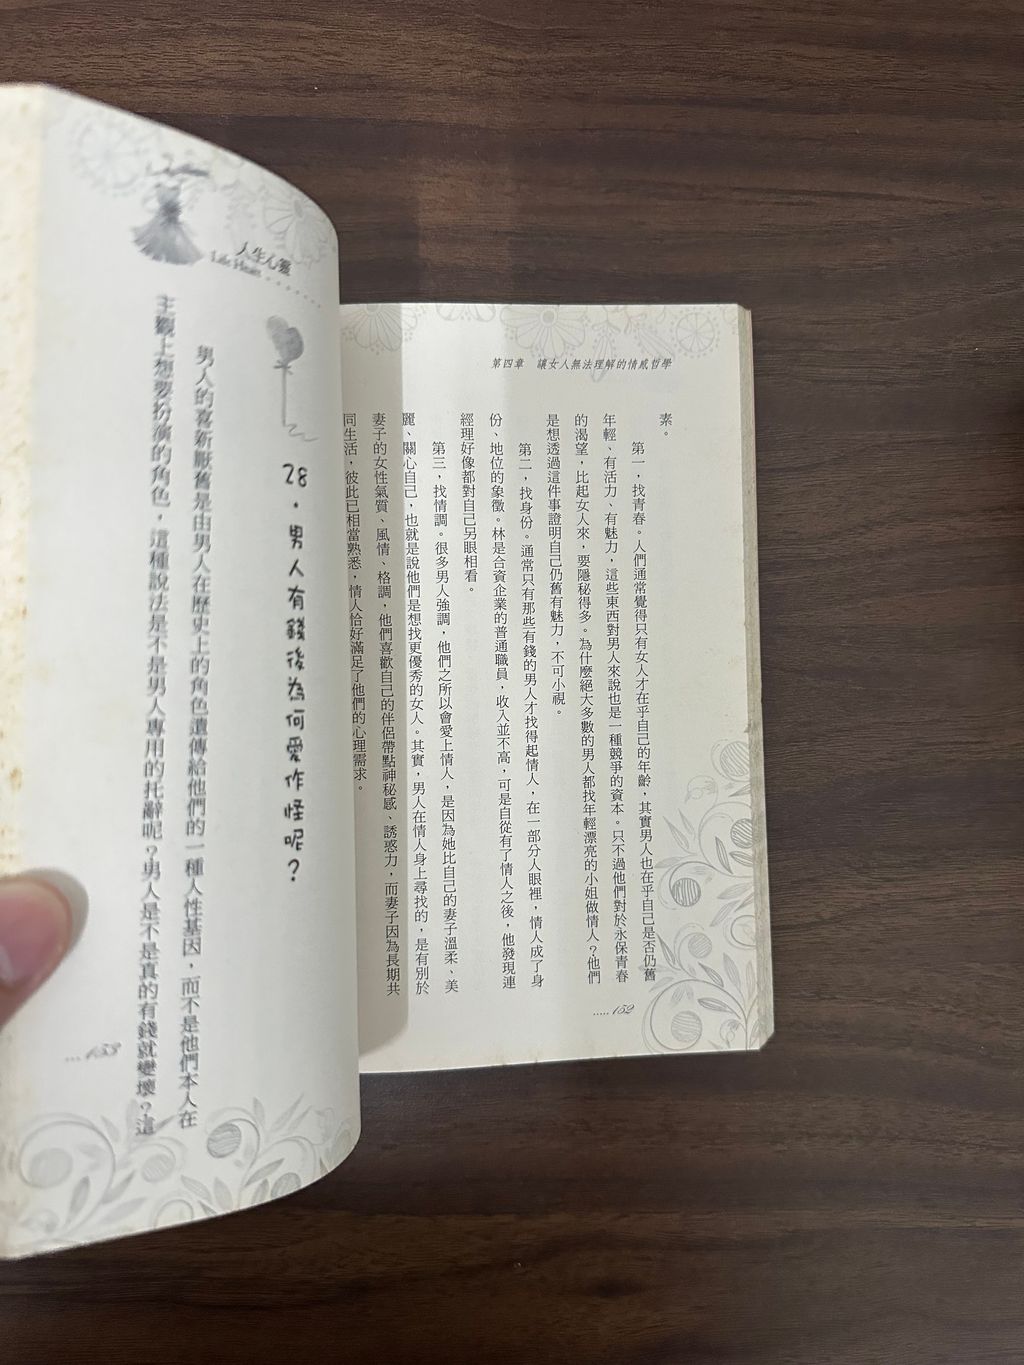 第四章　讓女人無法理解的情感哲學
素。
第一，找青春。人們通常覺得只有女人才在乎自己的年齡，其實男人也在乎自己是否仍舊
年輕、有活力、有魅力，這些東西對男人來說也是一種競爭的資本。只不過他們對於永保青春
的渴望，比起女人來，要隱秘得多。為什麼絕大多數的男人都找年輕漂亮的小姐做情人？他們
是想透過這件事證明自己仍舊有魅力，不可小視。
第二，找身份。通常只有那些有錢的男人才找得起情人，在一部分人眼裡，情人成了身
份、地位的象徵。林是合資企業的普通職員，收入並不高，可是自從有了情人之後，他發現連
經理好像都對自己另眼相看。
第三，找情調。很多男人強調，他們之所以會愛上情人，是因為她比自己的妻子溫柔、美
麗、關心自己，也就是說他們是想找更優秀的女人。其實，男人在情人身上尋找的，是有別於
妻子的女性氣質、風情、格調，他們喜歡自己的伴侶帶點神秘感、誘惑力，而妻子因為長期共
同生活，彼此已相當熟悉，情人恰好滿足了他們的心理需求。
.....152
人生心靈
Life Heart
28．男人有錢後為何愛作怪呢？
男人的喜新厭舊是由男人在歷史上的角色遺傳給他們的一種人性基因，而不是他們本人在
主觀上想要扮演的角色，這種說法是不是男人專用的托辭呢？男人是不是真的有錢就變壞？這
....153